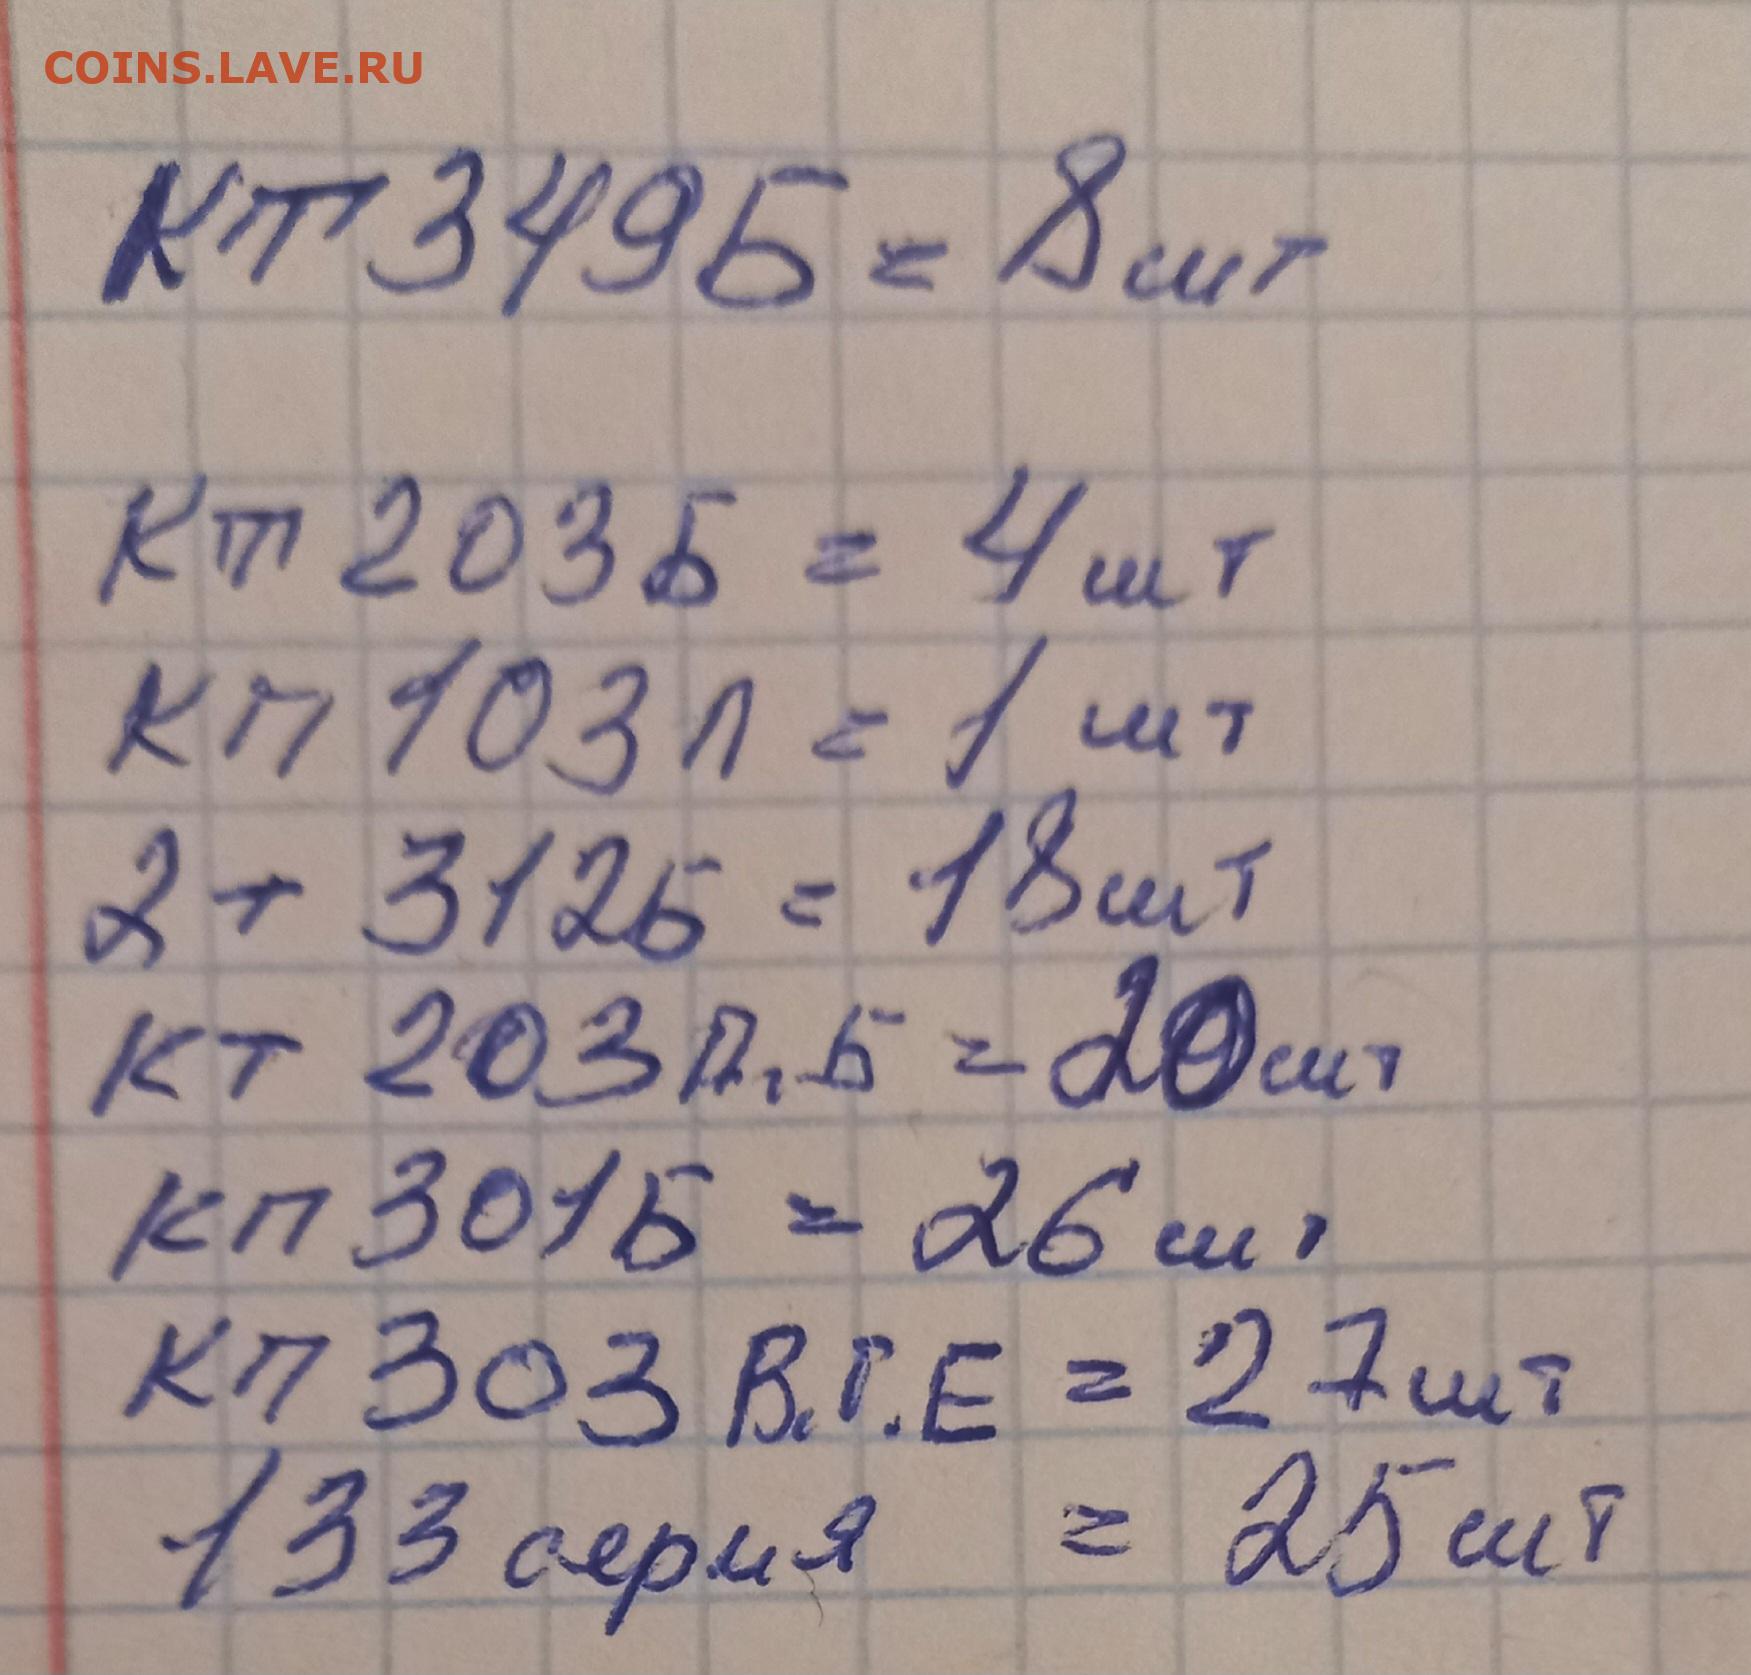 COINS.LAVE.RU
КТ349Б = 8шт
КТ 203Б = 4шт
КП 103Л = 1 шт
2Т 312Б = 18шт
КТ 203 Л.Б = 20шт
КП 301Б = 26 шт
КП 303 В.Г.Е = 27шт
133 серия = 25шт